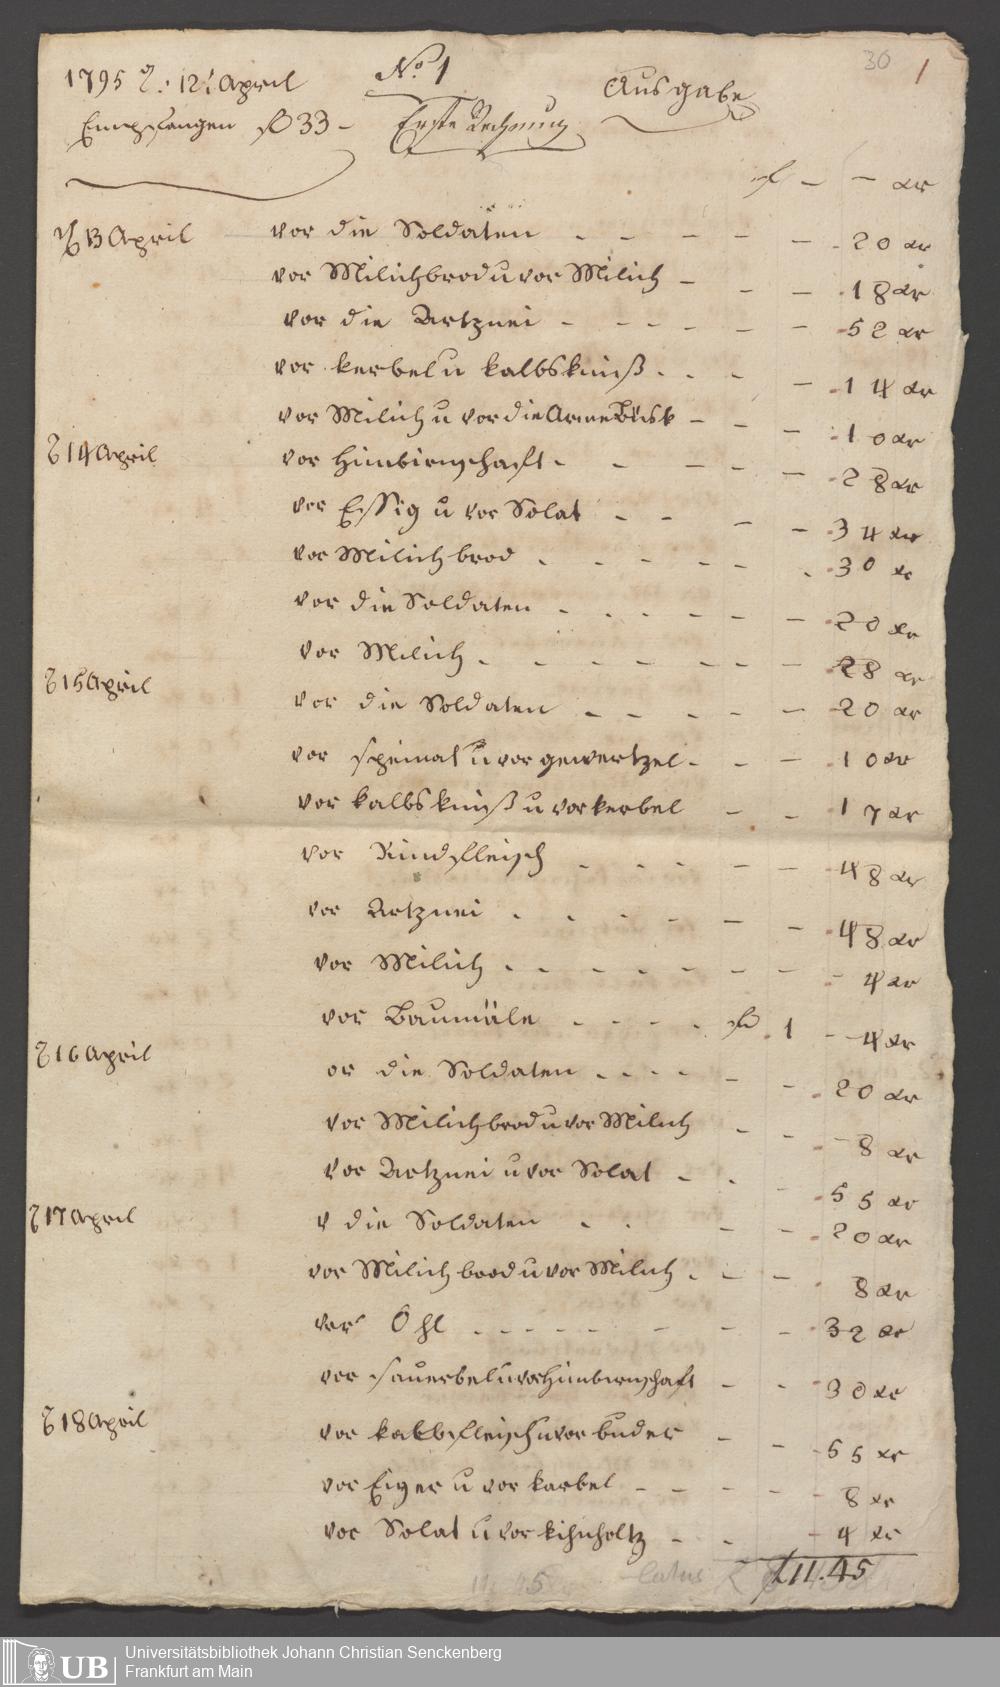 30 1
1795 d: 12t April No 1 Ausgabe
Empfangen fl 33 – Erste Rechnung
fl – – xr
d 13 April vor die Soldaten - - - - - 20 xr
vor Milichbrod u vor Milich - - - 18 xr
vor die Artznei - - - - - - 52 xr
vor kerbel u kalbskniß - - - - 14 xr
vor Milich u vor die Arme - - - 10 xr
d 14 April vor Himbirnschaft - - - - - 28 xr
vor Essig u vor Solat - - - - 34 xr
vor Milich brod - - - - - - 30 xr
vor die Soldaten - - - - - - 20 xr
vor Milich - - - - - - - 28 xr
d 15 April vor die Soldaten - - - - - 20 xr
vor speinat u vor gewertzel - - - 10 xr
vor kalbskniß u vor kerbel - - 17 xr
vor Rindfleisch - - - - - 48 xr
vor Artznei - - - - - - 48 xr
vor Milich - - - - - - - - 4 xr
vor Baumäle - - - - fl 1 - 4 xr
d 16 April or die Soldaten - - - - - - 20 xr
vor Milichbrod u vor Milich - - - 8 xr
vor Artznei u vor Solat - - - 55 xr
d 17 April v die Soldaten - - - - 20 xr
vor Milich brod u vor Milich - - - 8 xr
vor Ohl - - - - - - - - 32 xr
vor sauerbel u vor Himbirnschaft - - 30 xr
d 18 April vor kalbfleisch u vor buder - - 55 xr
vor Eiger u vor karbel - - - - - 8 xr
vor Solat u vor kihnholtz - - - 4 xr
11.45 latus f 11.45
UB Universitätsbibliothek Johann Christian Senckenberg
Frankfurt am Main